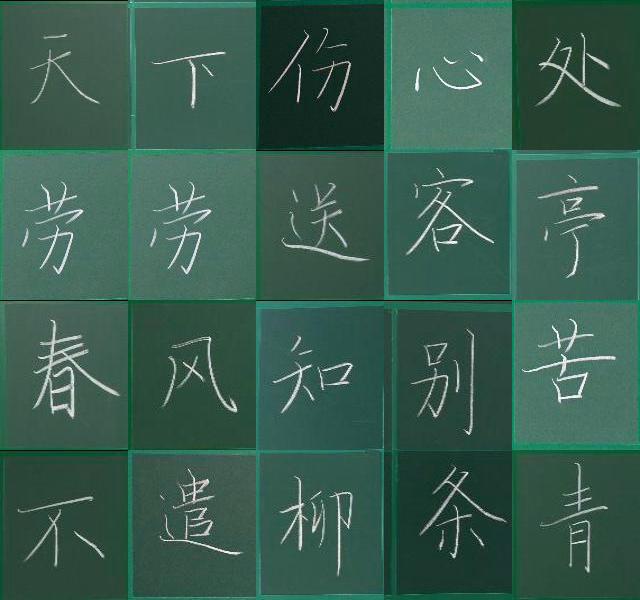 天下伤心处
劳劳送客亭
春风知别苦
不遣柳条青